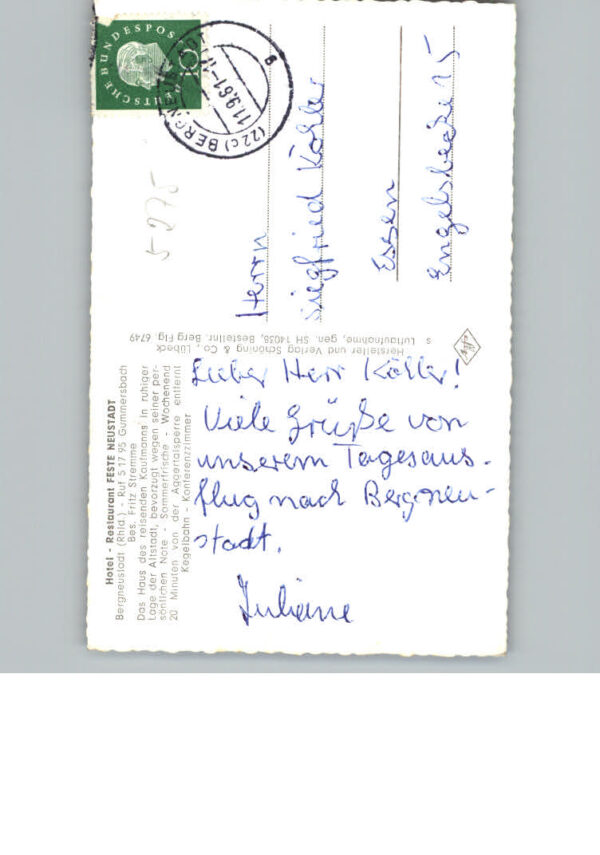 Hotel - Restaurant FESTE NEUSTADT
Bergneustadt (Rhld.) - Ruf 5 17 95 Gummersbach
Bes. Fritz Stremme
Das Haus des reisenden Kaufmanns in ruhiger
Lage der Altstadt, bevorzugt wegen seiner per-
sönlichen Note - Sommerfrische - Wochenend
20 Minuten von der Aggertalsperre entfernt
Kegelbahn - Konferenzzimmer
Lieber Herr Köhler!
Viele Grüße von
unserem Tagesaus-
flug nach Bergneu-
stadt.
Juliane
Hersteller und Verlag Schöning & Co., Lübeck
s Luftaufnahme, gen. SH 14038, Bestellnr. Berg Flg. 6749
DEUTSCHE BUNDESPOST
(22c) BERGNEUSTADT
11.9.61-17
a
5 275
Herrn
Siegfried Köhler
Essen
Engelsbecke 15